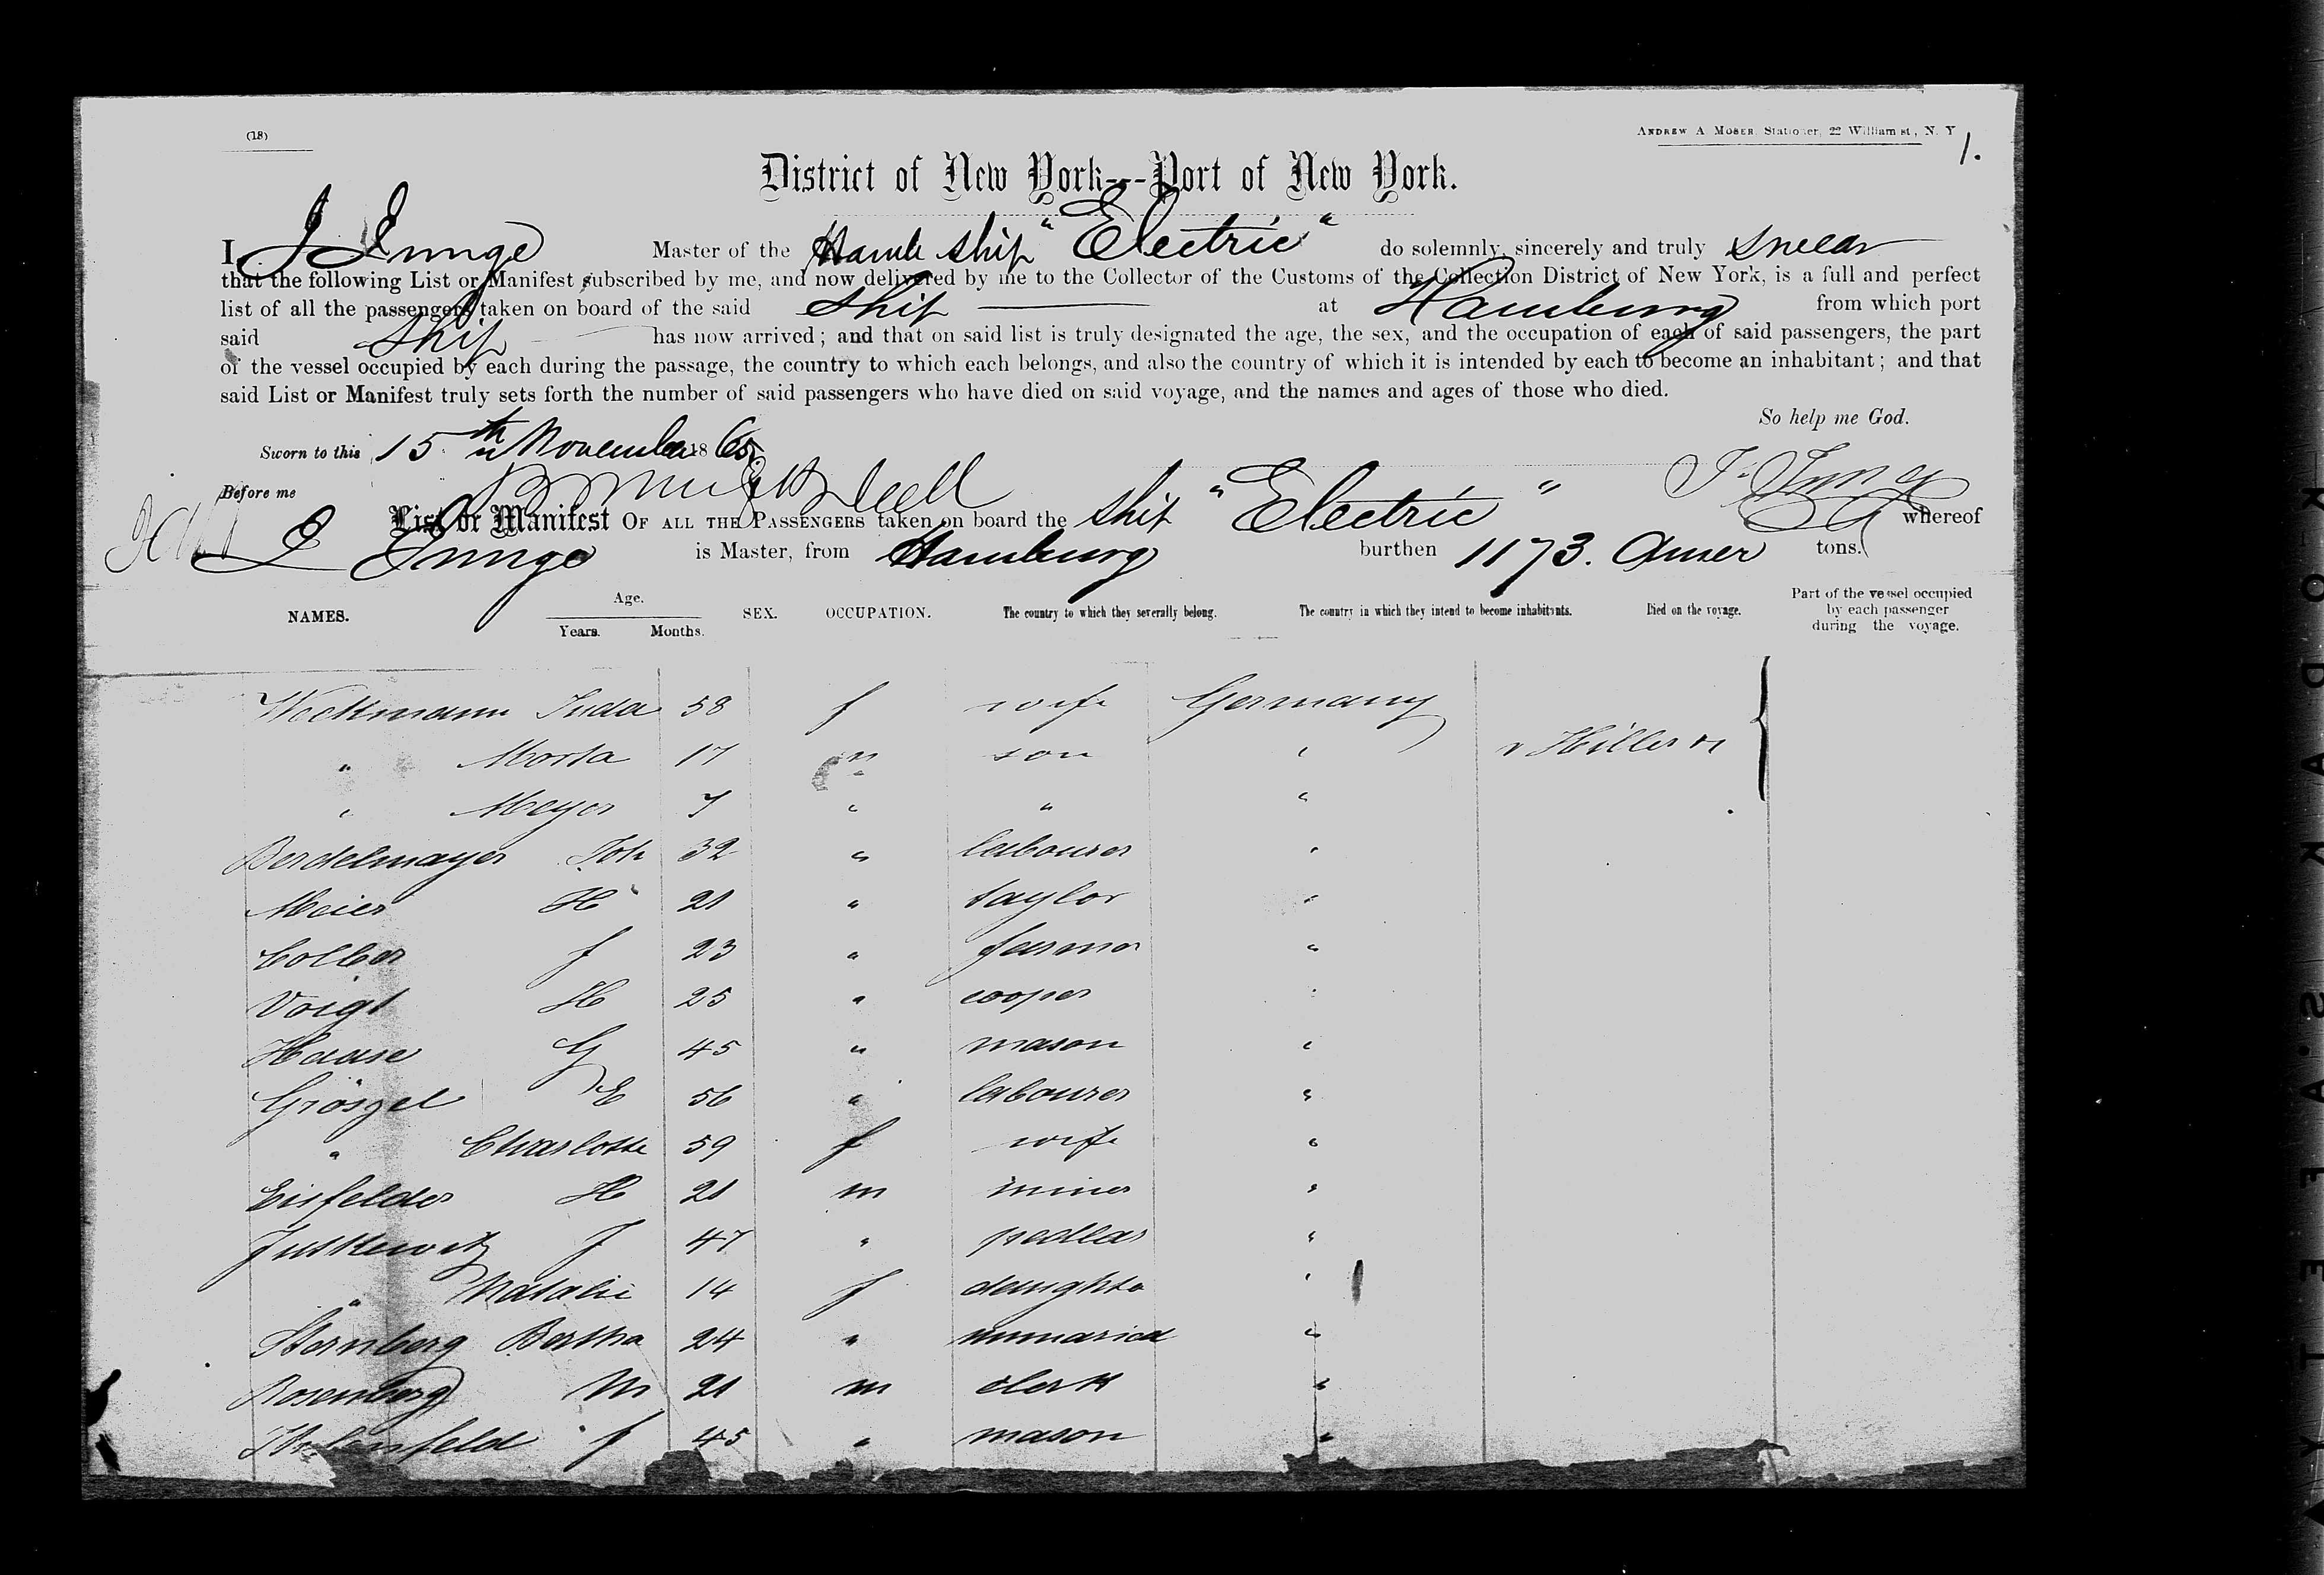 (18)
ANDREW A MOSER, Stationer, 22 William st., N. Y
1.
District of New York---Port of New York.
I, J Junge Master of the Hamb ship "Electric" do solemnly, sincerely and truly swear
that the following List or Manifest subscribed by me, and now delivered by me to the Collector of the Customs of the Collection District of New York, is a full and perfect
list of all the passengers taken on board of the said ship at Hamburg from which port
said ship has now arrived; and that on said list is truly designated the age, the sex, and the occupation of each of said passengers, the part
of the vessel occupied by each during the passage, the country to which each belongs, and also the country of which it is intended by each to become an inhabitant; and that
said List or Manifest truly sets forth the number of said passengers who have died on said voyage, and the names and ages of those who died.
So help me God.
Sworn to this 15th November 1865
Before me
List or Manifest OF ALL THE PASSENGERS taken on board the ship "Electric" whereof
J Junge is Master, from Hamburg burthen 1173. Amer tons.
NAMES. Age. Years. Months. SEX. OCCUPATION. The country to which they severally belong. The country in which they intend to become inhabitants. Died on the voyage. Part of the vessel occupied by each passenger during the voyage.
Wekmann Juda 58 f wife Germany
" Morta 17 m son "
" Meyer 7 " " "
Berdelmayer Joh 32 " labourer "
Meier H 21 " taylor "
Colber f 23 " farmer "
Voigt H 25 " cooper "
Haase G 45 " mason "
Gröszel E 56 " labourer "
" Charlotte 59 f wife "
Eisfelder H 21 m miner "
Juskewitz J 47 " pedlar "
" Natalie 14 f daughter "
Sternberg Bertha 24 " unmaried "
Rosenberg M 21 m clerk "
f 45 " mason "
KODAK S.A.F.E.T.Y